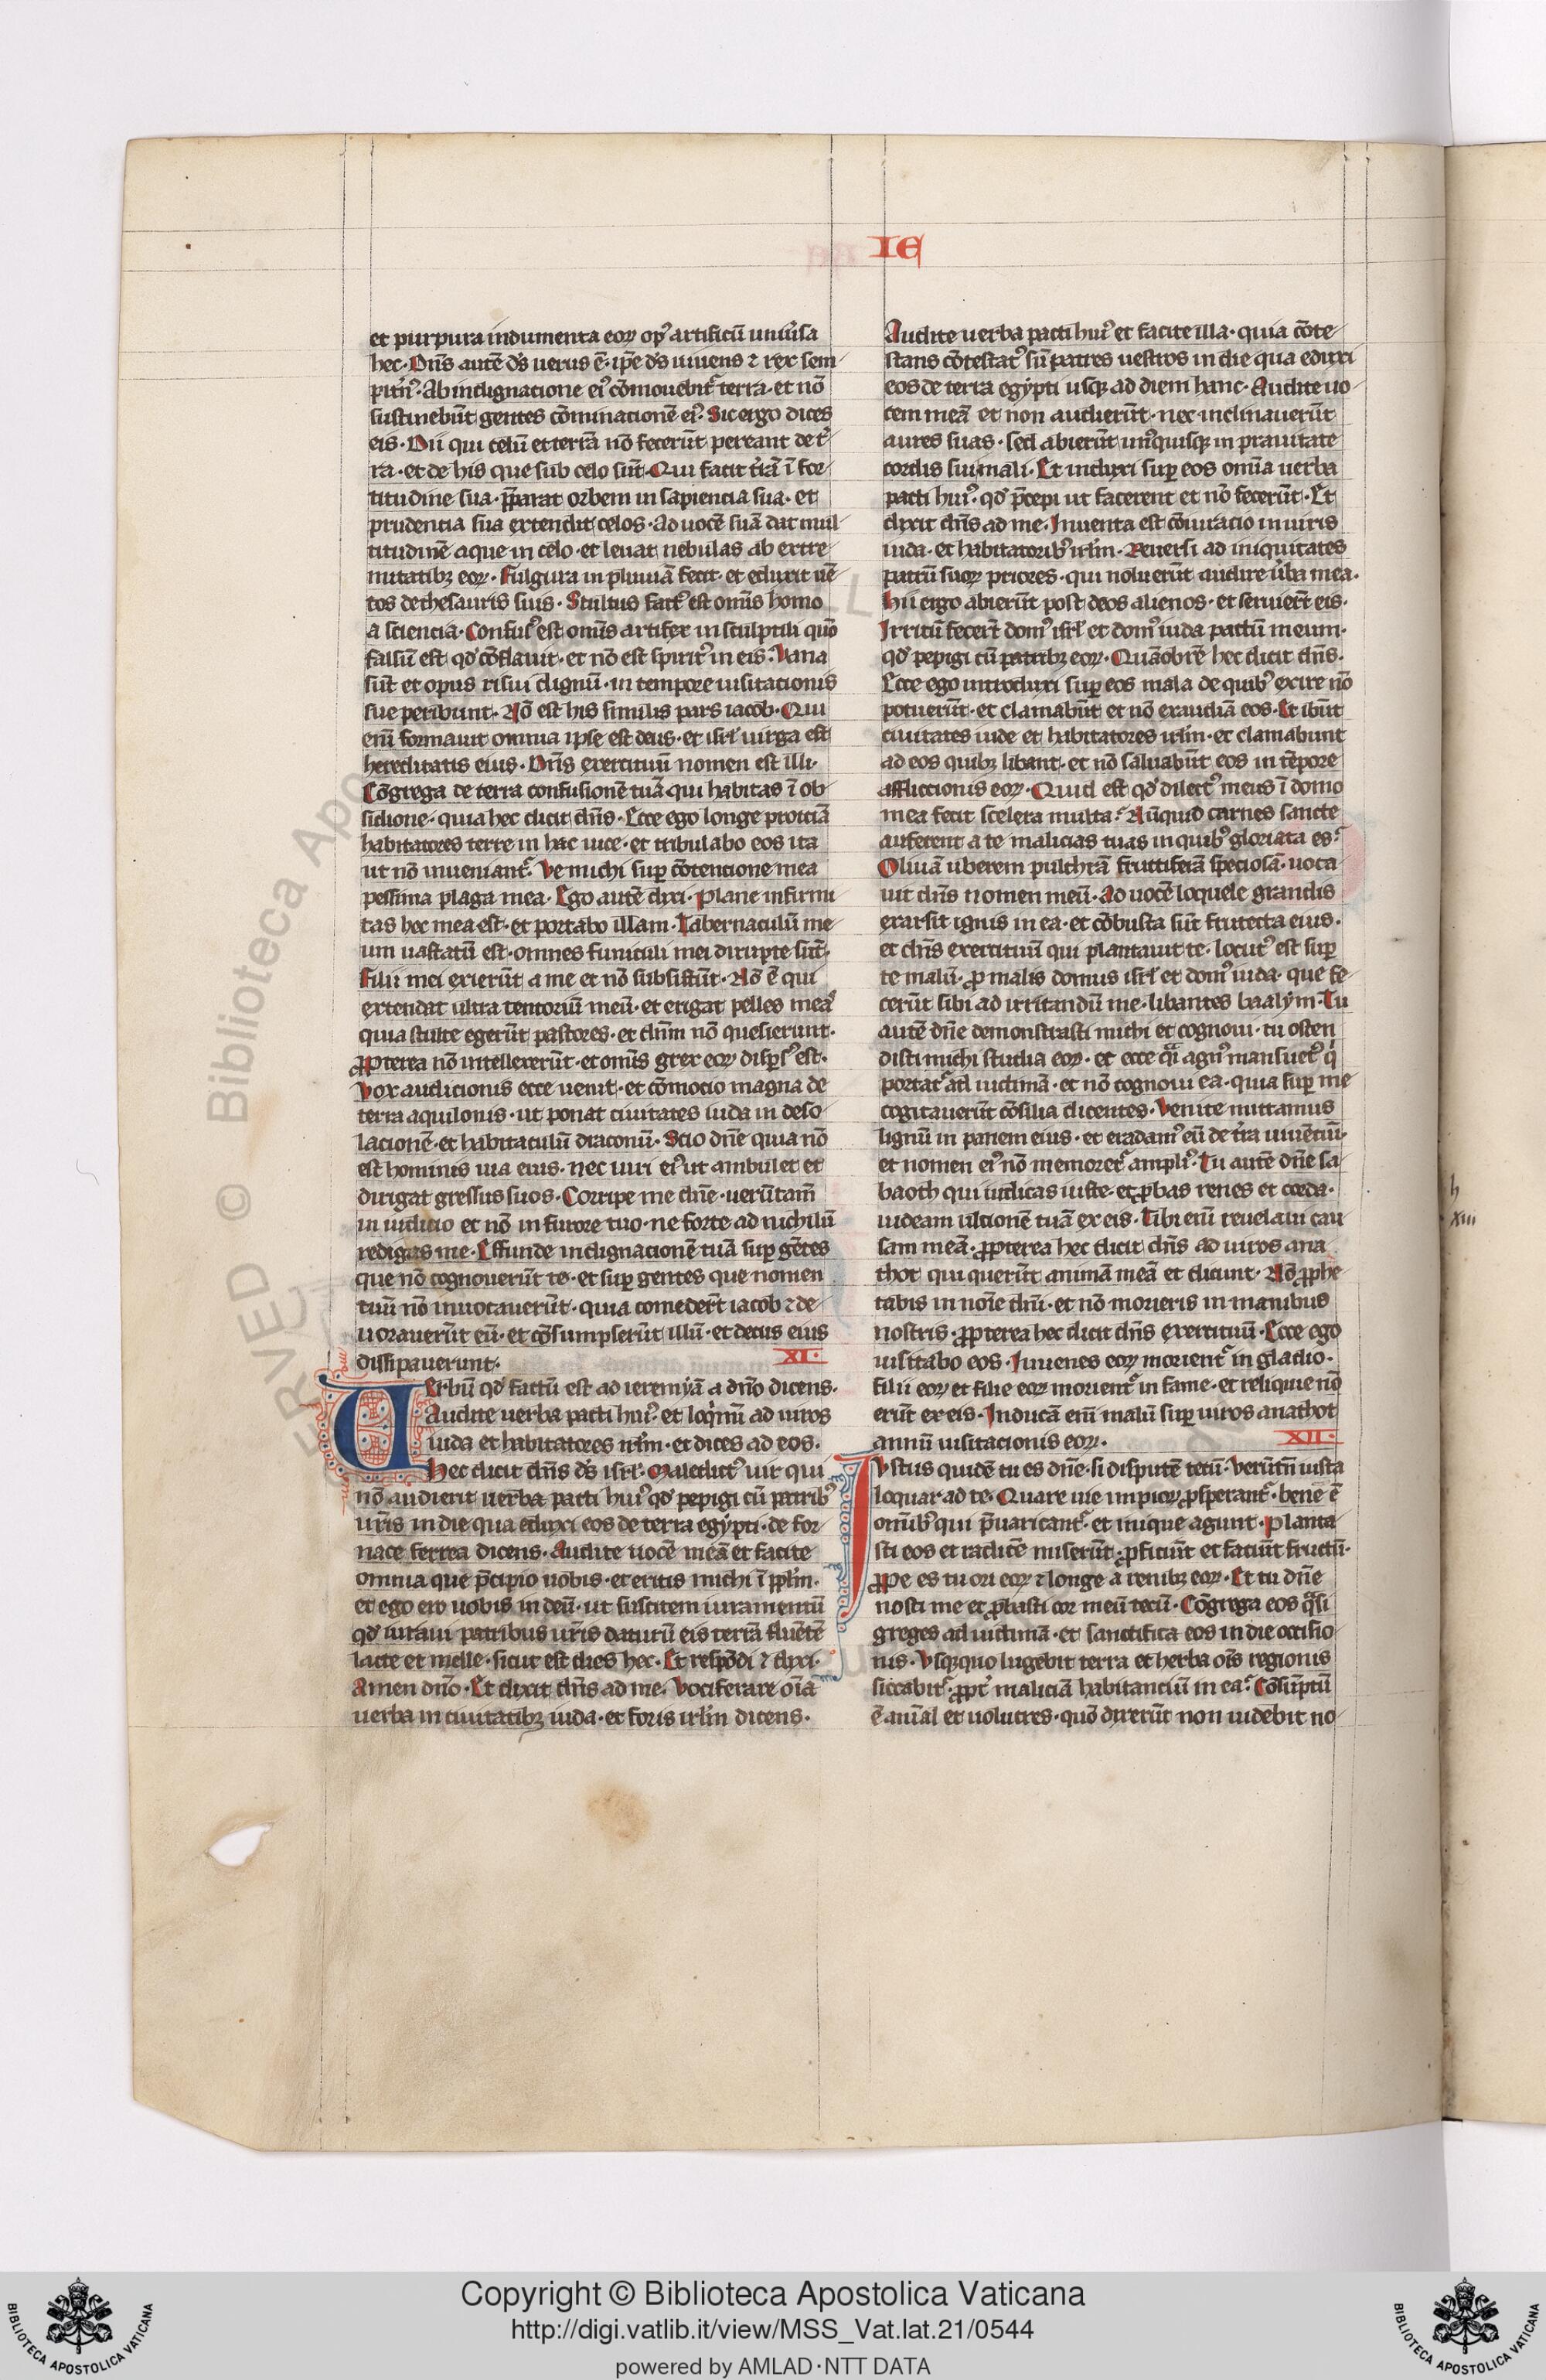 IE
et purpura indumenta eoꝝ opꝰ artificū uniũsa
hec· Dn̄s autē ds̄ uerus ē· ip̄e ds̄ uiuens ⁊ rex sem
pit̄nꝰ· Ab indignacione eiꝰ cōmouebit᷑ terra· et nō
sustinebūt gentes cōminacionē eiꝰ· Sic ergo dices
eis· Dii qui celū et terrā nō fecerūt pereant de t̄
ra· et de his que sub celo sūt· Qui facit t̄rā ī for
titudine sua· p̄parat orbem in sapiencia sua· et
prudencia sua extendit celos· Ad uocē suā dat mul
titudinē aque in celo· et leuat nebulas ab extre
mitatibꝫ eoꝝ· Fulgura in pluuiā fecit· et eduxit uē
tos de thesauris suis· Stultus factꝰ est omīs homo
a sciencia· Confusꝰ est omīs artifex in sculptili quō
falsū est qđ cōflauit· et nō est spiritꝰ in eis· Vana
sūt et opus risui dignū· in tempore uisitacionis
sue peribunt· Nō est his similis pars iacob· Qui
enī formauit omnia ipse est deus· et isrł uirga est
hereditatis eius· Dn̄s exercituū nomen est illi·
Cōgrega de terra confusionē tuā qui habitas ī ob
sidione· quia hec dicit dn̄s· Ecce ego longe proiciā
habitatores terre in hac uice· et tribulabo eos ita
ut nō inueniant᷑· Ve michi sup̱ cōtencione mea
pessima plaga mea· Ego autē dixi· Plane infirmi
tas hec mea est· et portabo illam· Tabernaculū me
um uastatū est· omnes funiculi mei dirupte sūt·
Filii mei exierūt a me et nō subsistūt· Nō ē qui
extendat ultra tentoriū meū· et erigat pelles meaˢ
quia stulte egerūt pastores· et dnm̄ nō quesierunt·
ꝓpterea nō intellexerūt· et omīs grex eoꝝ disp̱sꝰ est·
Vox audicionis ecce uenit· et cōmocio magna de
terra aquilonis· ut ponat ciuitates iuda in deso
lacionē· et habitaculū draconū· Scio dn̄e quia nō
est hominis uia eius· nec uiri eiꝰ ut ambulet et
dirigat gressus suos· Corripe me dn̄e· uerūtam̄
in iudicio et nō in furore tuo· ne forte ad nichilū
redigas me· Effunde indignacionē tuā sup̱ gētes
que nō cognouerūt te· et sup̱ gentes que nomen
tuū nō inuocauerūt· quia comeder̄t iacob ⁊ de
uorauerūt eū· et cōsumpserūt illū· et decus eius
dissipauerunt· XI·
UErbū qđ factū est ad ieremyā a dn̄o dicens·
Audite uerba pacti huiꝰ· et loqͥmī ad uiros
iuda et habitatores irl̄m· et dices ad eos·
Hec dicit dn̄s ds̄ isrł· Maledictꝰ uir qui
nō audierit uerba pacti huiꝰ qđ pepigi cū patribꝰ
ur̄is in die qua eduxi eos de terra egypti· de for
nace ferrea dicens· Audite uocē meā et facite
omnia que p̄cipio uobis· et eritis michi ī ppl̄m·
et ego ero uobis in deū· ut suscitem iuramentū
qđ iuraui patribus ur̄is daturū eis terrā fluētē
lacte et melle· sicut est dies hec· Et respōdi ⁊ dixi·
Amen dn̄o· Et dixit dn̄s ad me· Vociferare oīa
uerba in ciuitatibꝫ iuda· et foris irl̄m dicens·
Audite uerba pacti huiꝰ et facite illa· quia cōte
stans cōtestatꝰ sū patres uestros in die qua eduxi
eos de terra egypti usqꝫ ad diem hanc· Audite uo
cem meā et non audierūt· nec inclinauerūt
aures suas· sed abierūt unꝰquisqꝫ in prauitate
cordis sui mali· Et induxi sup̱ eos omīa uerba
pacti huiꝰ· qđ p̄cepi ut facerent et nō fecerūt· Et
dixit dn̄s ad me· Inuenta est cōiuracio in uiris
iuda· et habitatoribꝰ irl̄m· Reuersi ad iniquitates
patrū suoꝝ priores· qui noluerūt audire ūba mea·
Hii ergo abierūt post deos alienos· et seruier̄t eis·
Irritū fecer̄t domꝰ isrł et domꝰ iuda pactū meum·
qđ pepigi cū patribꝫ eoꝝ· Quāobrē hec dicit dn̄s·
Ecce ego introduxi sup̱ eos mala de quibꝰ exire nō
potuerūt· et clamabūt et nō exaudiā eos· Et ibūt
ciuitates iude et habitatores irl̄m· et clamabunt
ad eos quibꝫ libant· et nō saluabūt eos in tēpore
affliccionis eoꝝ· Quid est qđ dilectꝰ meus ī domo
mea fecit scelera multa· Nūquid carnes sancte
auferent a te malicias tuas in quibꝰ gloriata es·
Oliuā uberem pulchrā fructiferā speciosā· uoca
uit dn̄s nomen meū· Ad uocē loquele grandis
exarsit ignis in ea· et cōbusta sūt frutecta eius·
et dn̄s exercituū qui plantauit te· locutꝰ est sup̱
te malū· ꝓ malis domus isrł et domꝰ iuda· que fe
cerūt sibi ad irritandū me· libantes baalym· Tu
autē dn̄e demonstrasti michi et cognoui· tu osten
disti michi studia eoꝝ· et ecce qͣi agnꝰ mansuetꝰ qͥ
portat᷑ ad uictimā· et nō cognoui ea· quia sup̱ me
cogitauerūt cōsilia dicentes· Venite mittamus
lignū in panem eius· et eradamꝰ eū de t̄ra uiuētiū·
et nomen eiꝰ nō memoret᷑ ampliꝰ· Tu autē dn̄e sa
baoth qui iudicas iuste· et ꝓbas renes et corda·
uideam ulcionē tuā ex eis· Tibi enī reuelaui cau
sam meā· ꝓpterea hec dicit dn̄s ad uiros ana
thot qui querūt animā meā et dicunt· Nō ꝓphe
tabis in noīe dn̄i· et nō morieris in manibus
nostris· ꝓpterea hec dicit dn̄s exercituū· Ecce ego
uisitabo eos· Iuuenes eoꝝ morient᷑ in gladio·
filii eoꝝ et filie eoꝝ morient᷑ in fame· et reliquie nō
erūt ex eis· Inducā enī malū sup̱ uiros anathot
annū uisitacionis eoꝝ· XII·
IVstus quidē tu es dn̄e· si disputē tecū· Verūtn̄ iusta
loquar ad te· Quare uie impioꝝ ꝓsperant᷑· bene ē
omībꝰ qui p̄uaricant᷑· et inique agunt· Planta
sti eos et radicē miserūt· ꝓficiūt et faciūt fructū·
ꝓpe es tu ori eoꝝ ⁊ longe a renibꝫ eoꝝ· Et tu dn̄e
nosti me et ꝓbasti cor meū tecū· Cōgrega eos qͣsi
greges ad uictimā· et sanctifica eos in die occisio
nis· Vsqꝫquo lugebit terra et herba oīs regionis
siccabit᷑· ꝓpt̄ maliciā habitanciū in ea· Cōsūptū
ē aīal et uolucres· quō dixerūt non uidebit no
h
xiii
Copyright © Biblioteca Apostolica Vaticana
http://digi.vatlib.it/view/MSS_Vat.lat.21/0544
powered by AMLAD·NTT DATA
BIBLIOTECA APOSTOLICA VATICANA
BIBLIOTECA APOSTOLICA VATICANA